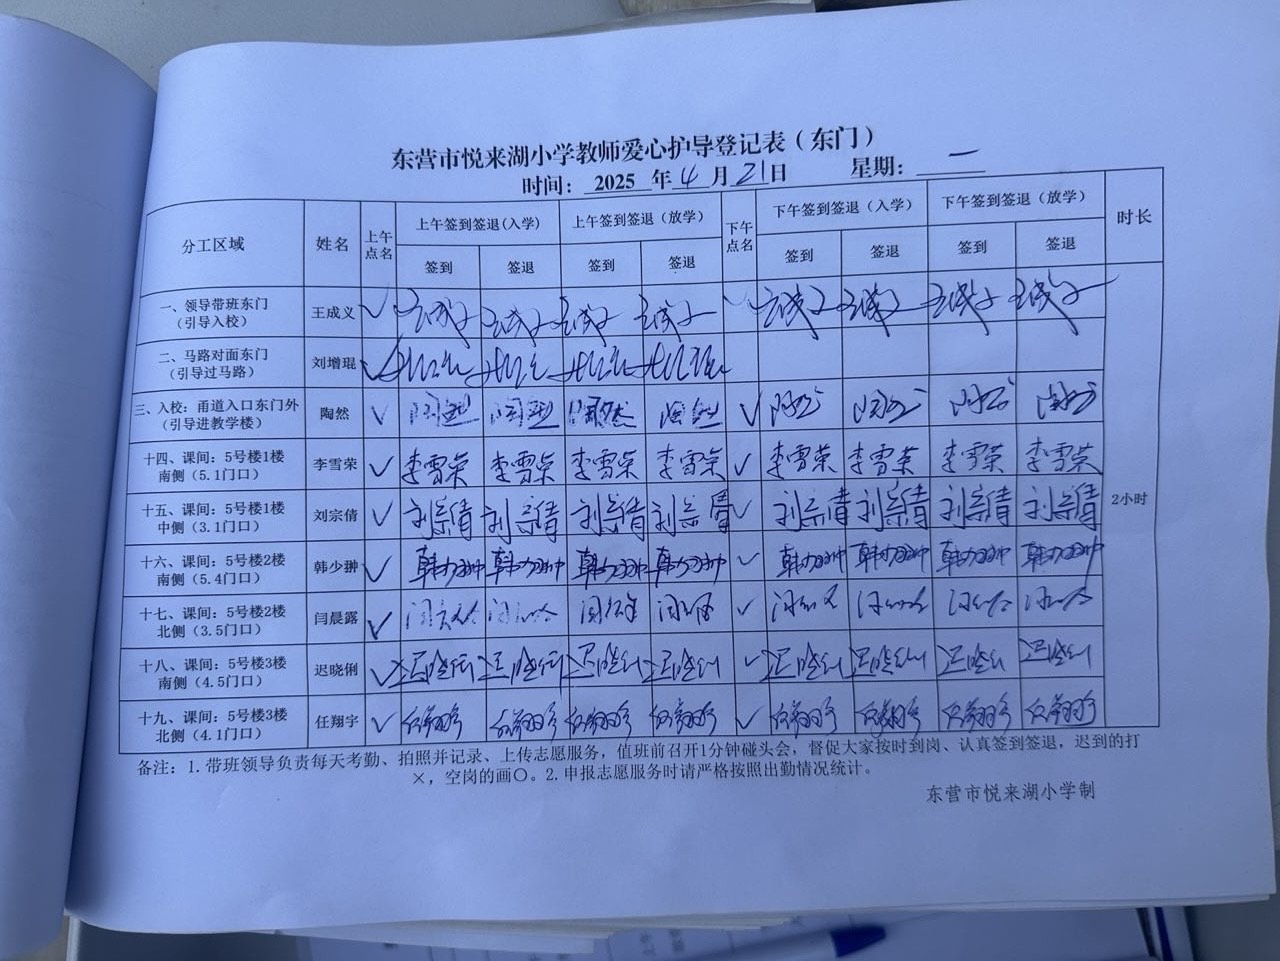 东营市悦来湖小学教师爱心护导登记表（东门）
时间： 2025 年 4 月 21 日 星期： 一
分工区域 姓名 上午点名 上午签到签退（入学） 上午签到签退（放学） 下午点名 下午签到签退（入学） 下午签到签退（放学） 时长
签到 签退 签到 签退 签到 签退 签到 签退
一、领导带班东门（引导入校） 王成义 ✓ ✓
二、马路对面东门（引导过马路） 刘增琨 ✓
三、入校：甬道入口东门外（引导进教学楼） 陶然 ✓ 陶然 陶然 陶然 陶然 ✓
十四、课间：5号楼1楼南侧（5.1门口） 李雪荣 ✓ 李雪荣 李雪荣 李雪荣 李雪荣 ✓ 李雪荣 李雪荣 李雪荣 李雪荣
十五、课间：5号楼1楼中侧（3.1门口） 刘宗倩 ✓ 刘宗倩 刘宗倩 刘宗倩 刘宗倩 ✓ 刘宗倩 刘宗倩 刘宗倩 刘宗倩 2小时
十六、课间：5号楼2楼南侧（5.4门口） 韩少翀 ✓ 韩少翀 韩少翀 韩少翀 韩少翀 ✓ 韩少翀 韩少翀 韩少翀 韩少翀
十七、课间：5号楼2楼北侧（3.5门口） 闫晨露 ✓ ✓
十八、课间：5号楼3楼南侧（4.5门口） 迟晓俐 ✓ 迟晓俐 迟晓俐 迟晓俐 迟晓俐 ✓ 迟晓俐 迟晓俐 迟晓俐 迟晓俐
十九、课间：5号楼3楼北侧（4.1门口） 任翔宇 ✓ 任翔宇 任翔宇 任翔宇 任翔宇 ✓ 任翔宇 任翔宇 任翔宇 任翔宇
备注：1.带班领导负责每天考勤、拍照并记录、上传志愿服务，值班前召开1分钟碰头会，督促大家按时到岗、认真签到签退，迟到的打
×，空岗的画〇。2.申报志愿服务时请严格按照出勤情况统计。
东营市悦来湖小学制